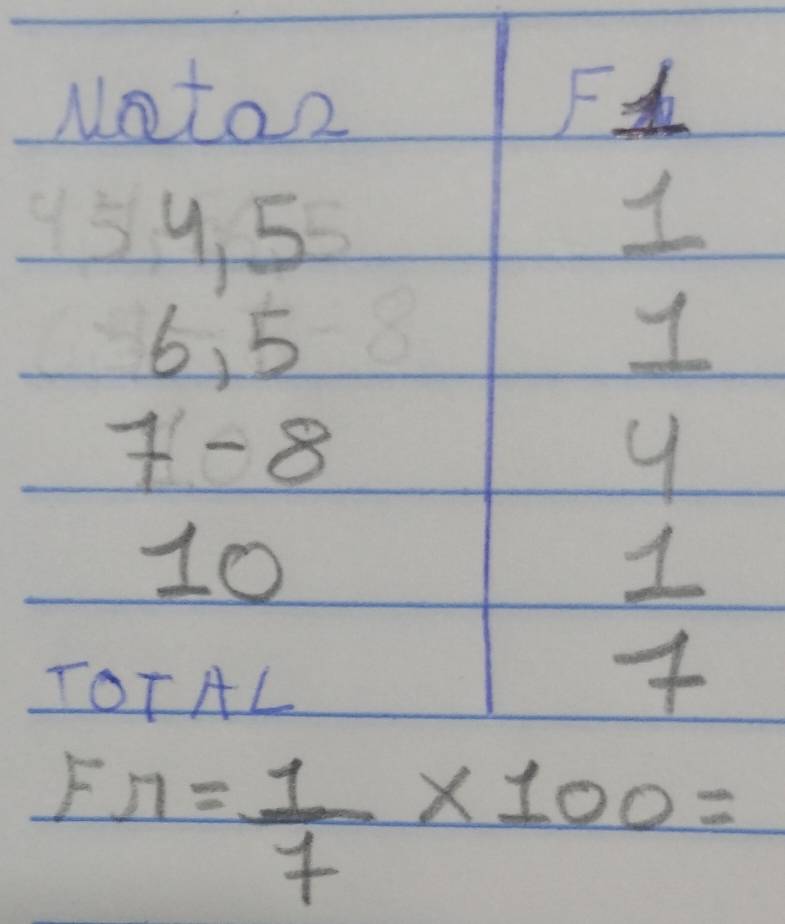 Notas F1
4,5 1
6,5 1
7-8 4
10 1
TOTAL 7
Fr = 1/7 × 100 =